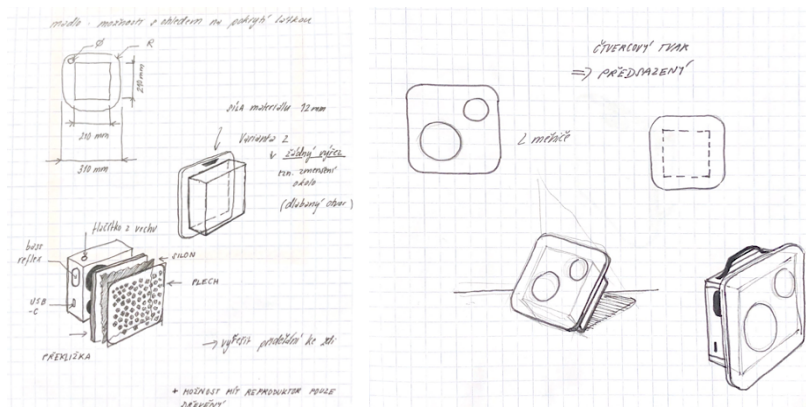 madlo - možnosti s ohledem na pokrytí látkou
Ø R
210 mm
210 mm
310 mm
síla materiálu 12mm
Varianta 2
žádný výřez
zmenšení
okolo
(dlabaný otvor)
tlačítko z vrchu
bass
reflex
SILON
PLECH
USB
-C
PŘEKLIŽKA
→ vyřešit přidělání ke zdi
+ MOŽNOST MÍT REPRODUKTOR POUZE
DŘEVĚNÝ
ČTVERCOVÝ TVAR
⇒ PŘEDSAZENÝ
2 měniče